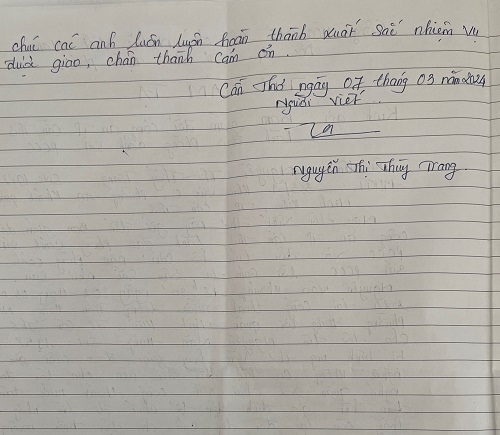 chúc các anh luôn luôn hoàn thành xuất sắc nhiệm vụ
được giao, chân thành cám ơn.
Cần Thơ ngày 07 tháng 03 năm 2024
Người viết
Nguyễn Thị Thùy Trang